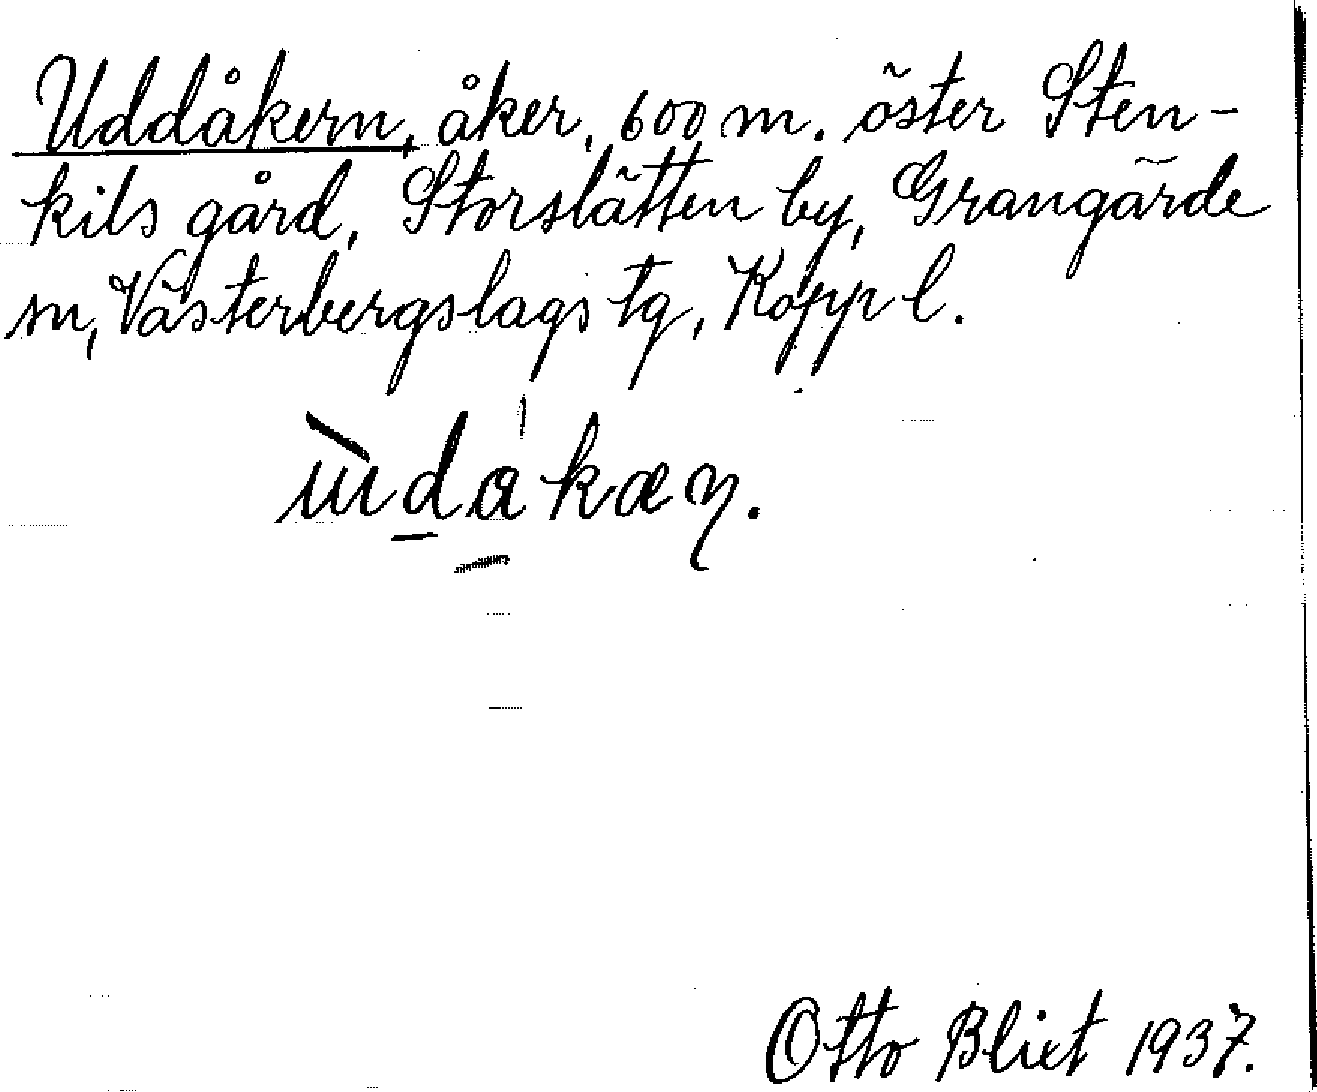 Uddåkern, åker, 600 m. öster Sten-
kils gård, Storslätten by, Grangärde
sn, Västerbergslags tg, Kopp l.
ùdakæŋ.
Otto Blixt 1937.